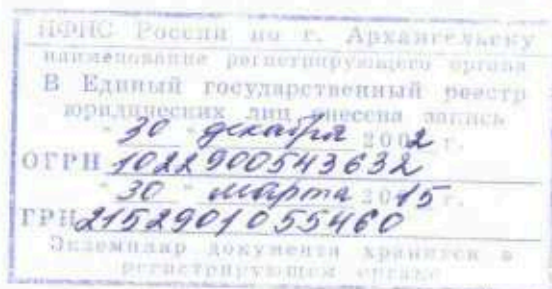 ИФНС России по г. Архангельску
наименование регистрирующего органа
В Единый государственный реестр
юридических лиц внесена запись
"30" декабря 2002 г.
ОГРН 1022900543632
"30" марта 2015
ГРН 2152901055460
Экземпляр документа хранится в
регистрирующем органе